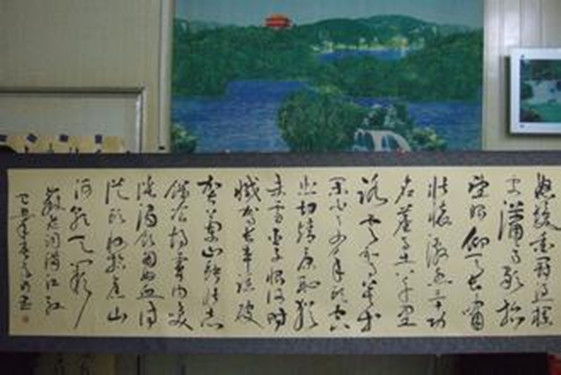 怒髮衝冠憑欄
處瀟瀟雨歇抬
望眼仰天長嘯
壯懷激烈三十功
名塵與土八千里
路雲和月莫
等閒白了少年頭空
悲切靖康恥猶
未雪臣子恨何時
滅駕長車踏破
賀蘭山缺壯志
飢餐胡虜肉笑
談渴飲匈奴血待
從頭收拾舊山
河朝天闕
岳飛詞滿江紅
己丑年